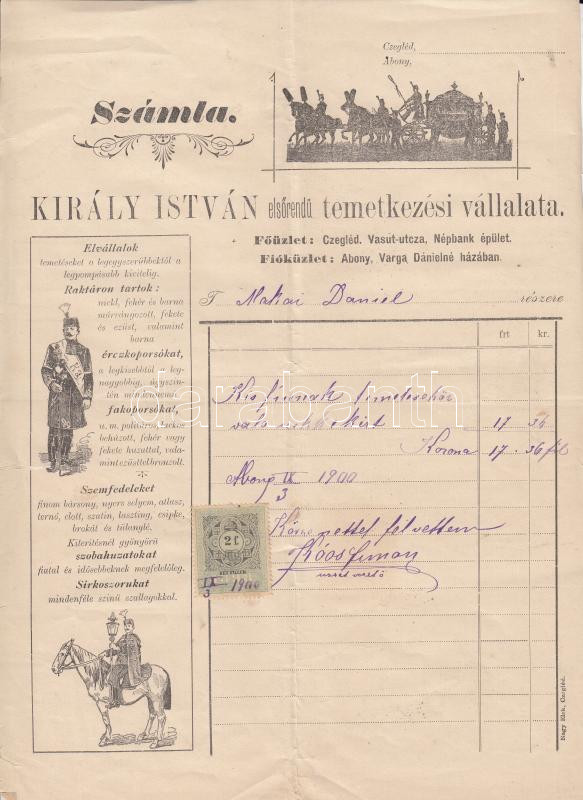 Czegléd,
Abony,
Számla.
KIRÁLY ISTVÁN elsőrendű temetkezési vállalata.
Főüzlet: Czegléd. Vasút-utcza, Népbank épület.
Fióküzlet: Abony, Varga Dánielné házában.
Elvállalok
temetéseket a legegyszerűbbektől a
legpompásabb kivitelig.
Raktáron tartok:
fehér és barna
márványozott, fekete
és ezüst, valamint
barna
érczkoporsókat,
a legkisebbtől a leg-
nagyobbig, úgyszin-
tén mindennemű
fakoporsókat,
u. m. politúros, nehéz
behúzott, fehér vagy
fekete huzattal, vala-
mint ezüsttel bronzolt.
Szemfedeleket
finom bársony, nyers selyem, atlasz,
ternó, clott, szatin, laszting, csipke,
brokát és tüllanglé.
Kiterítésnél gyönyörű
szobahuzatokat
fiatal és idősebbeknek megfelelőleg.
Sirkoszorukat
mindenféle szinű szallagokkal.
T. Makai Daniel részére
frt kr.
Kis fiunak temetesehez
17 36
Korona 17 . 36 fil
Abony IX/3 1900
felvettem
Koós Simon
2 f
KÉT FILLÉR
IX/3 1900
Nagy Elek, Czegléd.
darabanth